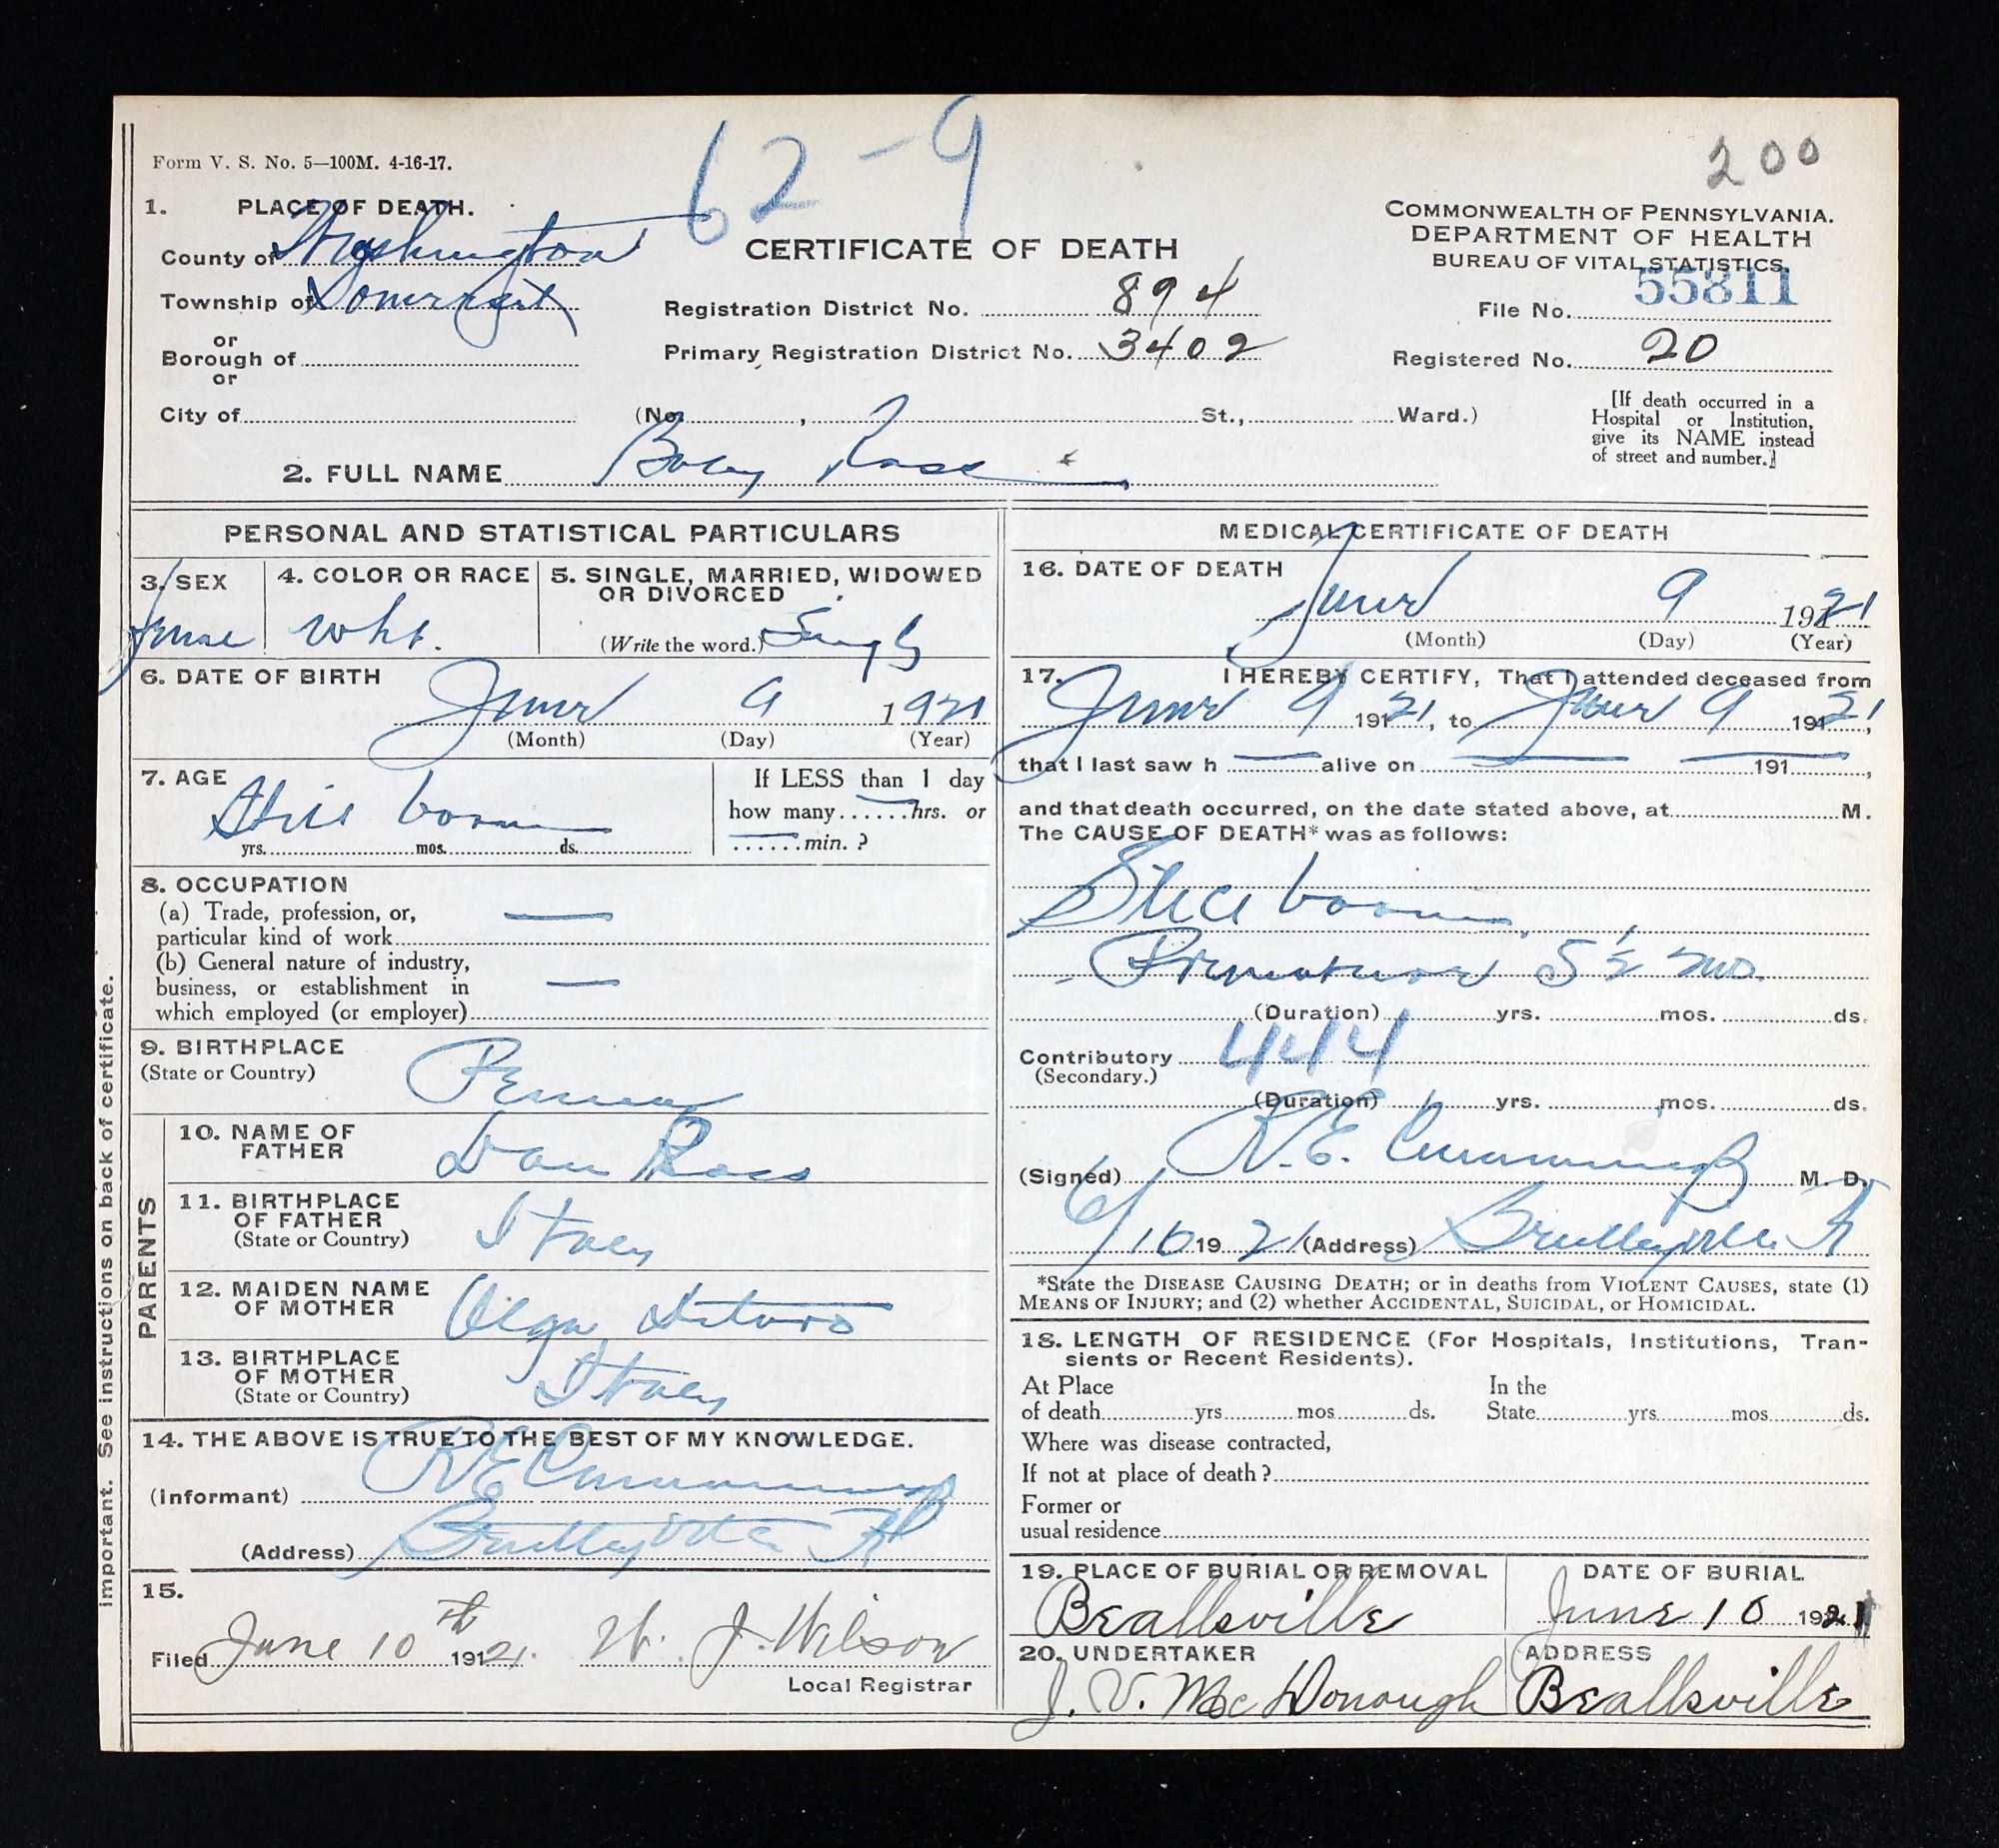 62-9
200
Form V. S. No. 5—100M. 4-16-17.
1. PLACE OF DEATH.
County of Washington
Township of Somerset
or
Borough of
or
City of
CERTIFICATE OF DEATH
Registration District No. 894
Primary Registration District No. 3402
(No. , St., Ward.)
COMMONWEALTH OF PENNSYLVANIA.
DEPARTMENT OF HEALTH
BUREAU OF VITAL STATISTICS
File No. 55811
Registered No. 20
[If death occurred in a
Hospital or Institution,
give its NAME instead
of street and number.]
2. FULL NAME Baby Ross
PERSONAL AND STATISTICAL PARTICULARS
3. SEX
4. COLOR OR RACE
wht.
5. SINGLE, MARRIED, WIDOWED
OR DIVORCED
(Write the word.) Single
6. DATE OF BIRTH
June 9 1921
(Month) (Day) (Year)
7. AGE
Still born
yrs. mos. ds.
If LESS than 1 day
how many ......hrs. or
......min. ?
8. OCCUPATION
(a) Trade, profession, or,
particular kind of work
(b) General nature of industry,
business, or establishment in
which employed (or employer)
9. BIRTHPLACE
(State or Country)
Penna
PARENTS
10. NAME OF
FATHER
Dan Ross
11. BIRTHPLACE
OF FATHER
(State or Country)
Italy
12. MAIDEN NAME
OF MOTHER
Olga
13. BIRTHPLACE
OF MOTHER
(State or Country)
Italy
14. THE ABOVE IS TRUE TO THE BEST OF MY KNOWLEDGE.
(Informant) R E Cummings
(Address)
15.
Filed June 10th 1921. W. J. Wilson
Local Registrar
important. See instructions on back of certificate.
MEDICAL CERTIFICATE OF DEATH
16. DATE OF DEATH
June 9 1921
(Month) (Day) (Year)
17. I HEREBY CERTIFY, That I attended deceased from
June 9 1921, to June 9 1921,
that I last saw h alive on 191 ,
and that death occurred, on the date stated above, at M.
The CAUSE OF DEATH* was as follows:
Still born
Premature 5 1/2 mo.
(Duration) yrs. mos. ds.
Contributory 444
(Secondary.)
(Duration) yrs. mos. ds.
(Signed) R. E. Cummings M. D.
6/10 1921 (Address)
*State the DISEASE CAUSING DEATH; or in deaths from VIOLENT CAUSES, state (1)
MEANS OF INJURY; and (2) whether ACCIDENTAL, SUICIDAL, or HOMICIDAL.
18. LENGTH OF RESIDENCE (For Hospitals, Institutions, Tran-
sients or Recent Residents).
At Place In the
of death yrs mos ds. State yrs mos ds.
Where was disease contracted,
If not at place of death?
Former or
usual residence
19. PLACE OF BURIAL OR REMOVAL
Beallsville
DATE OF BURIAL
June 10 1921
20. UNDERTAKER
J. V. McDonough
ADDRESS
Beallsville